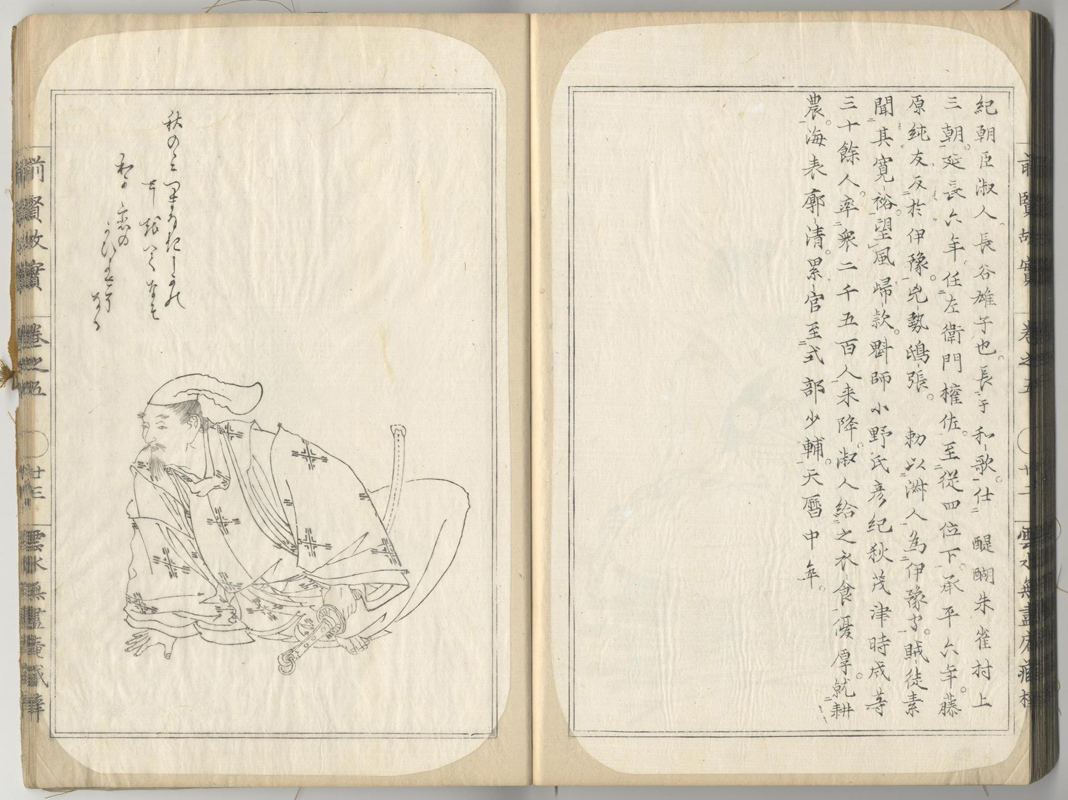 紀朝臣淑人長谷雄子也。長于和歌。仕 醍醐朱雀村上
三朝。延長六年任左衛門権佐。至從四位下。承平六年。藤
原純友反於伊豫。兇勢鴟張。 勅以淑人為伊豫守。賊徒素
聞其寛裕。望風帰款。魁師小野氏彦紀秋茂津時成等
三十餘人。率衆二千五百人来降。淑人給之衣食優厚。就耕
農。海表廓清。累官至式部少輔。天暦中卒。
前賢故實 巻之五 廿二
秋のゝに
前賢故實 巻之五 廿三